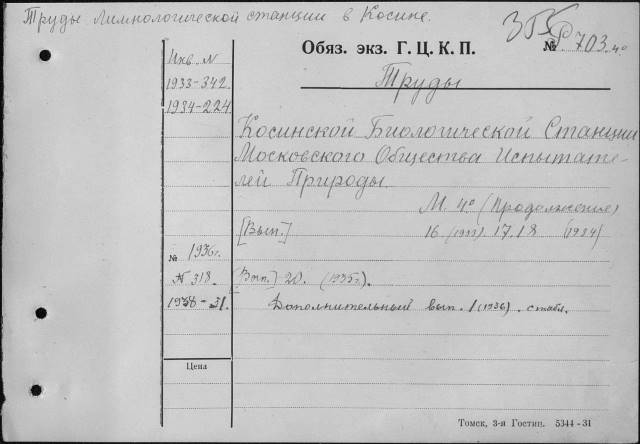 Труды Лимнологической станции в Косине.
355
Обяз. экз. Г. Ц. К. П. № Р 703. 4°
Труды
Инв. N
1933-342.
1934-224
Косинской Биологической Станции
Московского Общества Испытате-
лей Природы.
М. 4° (Продолжение)
[Вып.] 16 (1933). 17.18 (1934)
№ 1936г.
№ 318. [Вып.] 20. (1935г).
1938-31. Дополнительный вып. 1 (1936). с табл.
Цена
Томск, 3-я Гостип. 5344-31